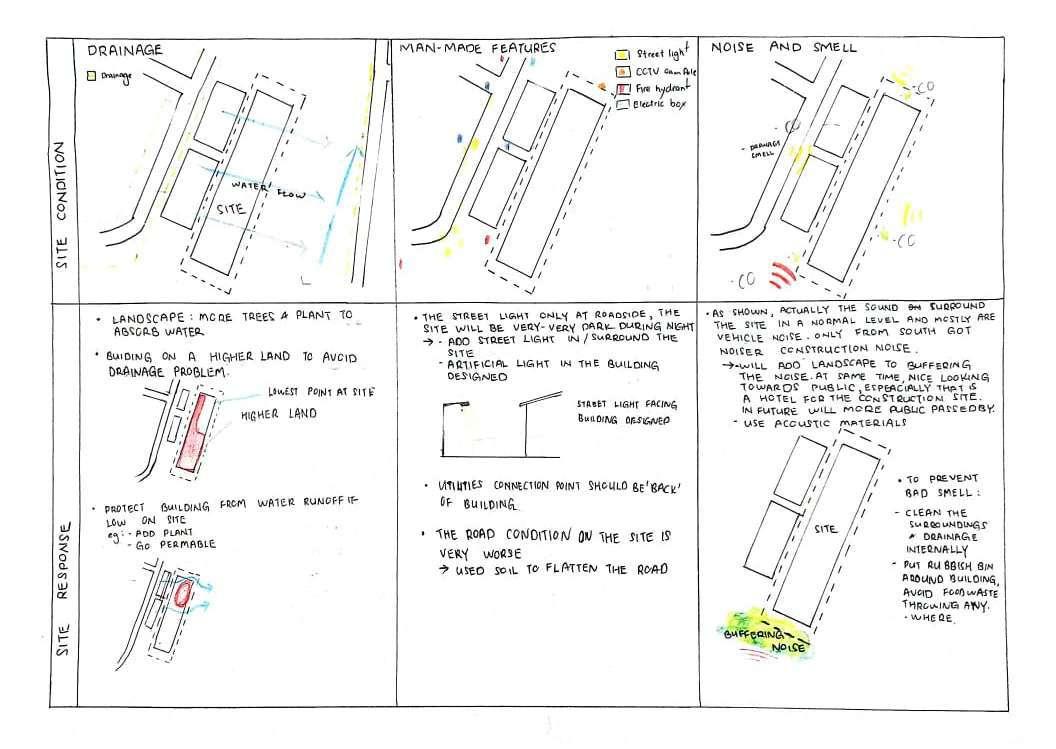 DRAINAGE
Drainage
WATER FLOW
SITE
MAN-MADE FEATURES
Street light
CCTV
Fire hydrant
Electric box
NOISE AND SMELL
CO
CO
- DRAINAGE
SMELL
CO
CO
SITE CONDITION
• LANDSCAPE : MORE TREES & PLANT TO
ABSORB WATER
• BUIDING ON A HIGHER LAND TO AVOID
DRAINAGE PROBLEM.
LOWEST POINT AT SITE
HIGHER LAND
• PROTECT BUILDING FROM WATER RUNOFF IF
LOW ON SITE
eg: - ADD PLANT
- GO PERMABLE
• THE STREET LIGHT ONLY AT ROADSIDE, THE
SITE WILL BE VERY-VERY DARK DURING NIGHT
→ - ADD STREET LIGHT IN / SURROUND THE
SITE
- ARTIFICIAL LIGHT IN THE BUILDING
DESIGNED
STREET LIGHT FACING
BUILDING DESIGNED
• UTILITIES CONNECTION POINT SHOULD BE 'BACK'
OF BUILDING.
• THE ROAD CONDITION ON THE SITE IS
VERY WORSE
→ USED SOIL TO FLATTEN THE ROAD
• AS SHOWN, ACTUALLY THE SOUND SURROUND
THE SITE IN A NORMAL LEVEL AND MOSTLY ARE
VEHICLE NOISE. ONLY FROM SOUTH GOT
NOISER CONSTRUCTION NOISE.
→ - WILL ADD LANDSCAPE TO BUFFERING
THE NOISE. AT SAME TIME, NICE LOOKING
TOWARDS PUBLIC, ESPECIALLY THAT IS
A HOTEL FOR THE CONSTRUCTION SITE.
IN FUTURE WILL MORE PUBLIC PASSED BY.
- USE ACOUSTIC MATERIALS
SITE
BUFFERING
NOISE
• TO PREVENT
BAD SMELL :
- CLEAN THE
SURROUNDINGS
& DRAINAGE
INTERNALLY
- PUT RUBBISH BIN
AROUND BUILDING,
AVOID FOODWASTE
THROWING ANY.
- WHERE.
SITE RESPONSE